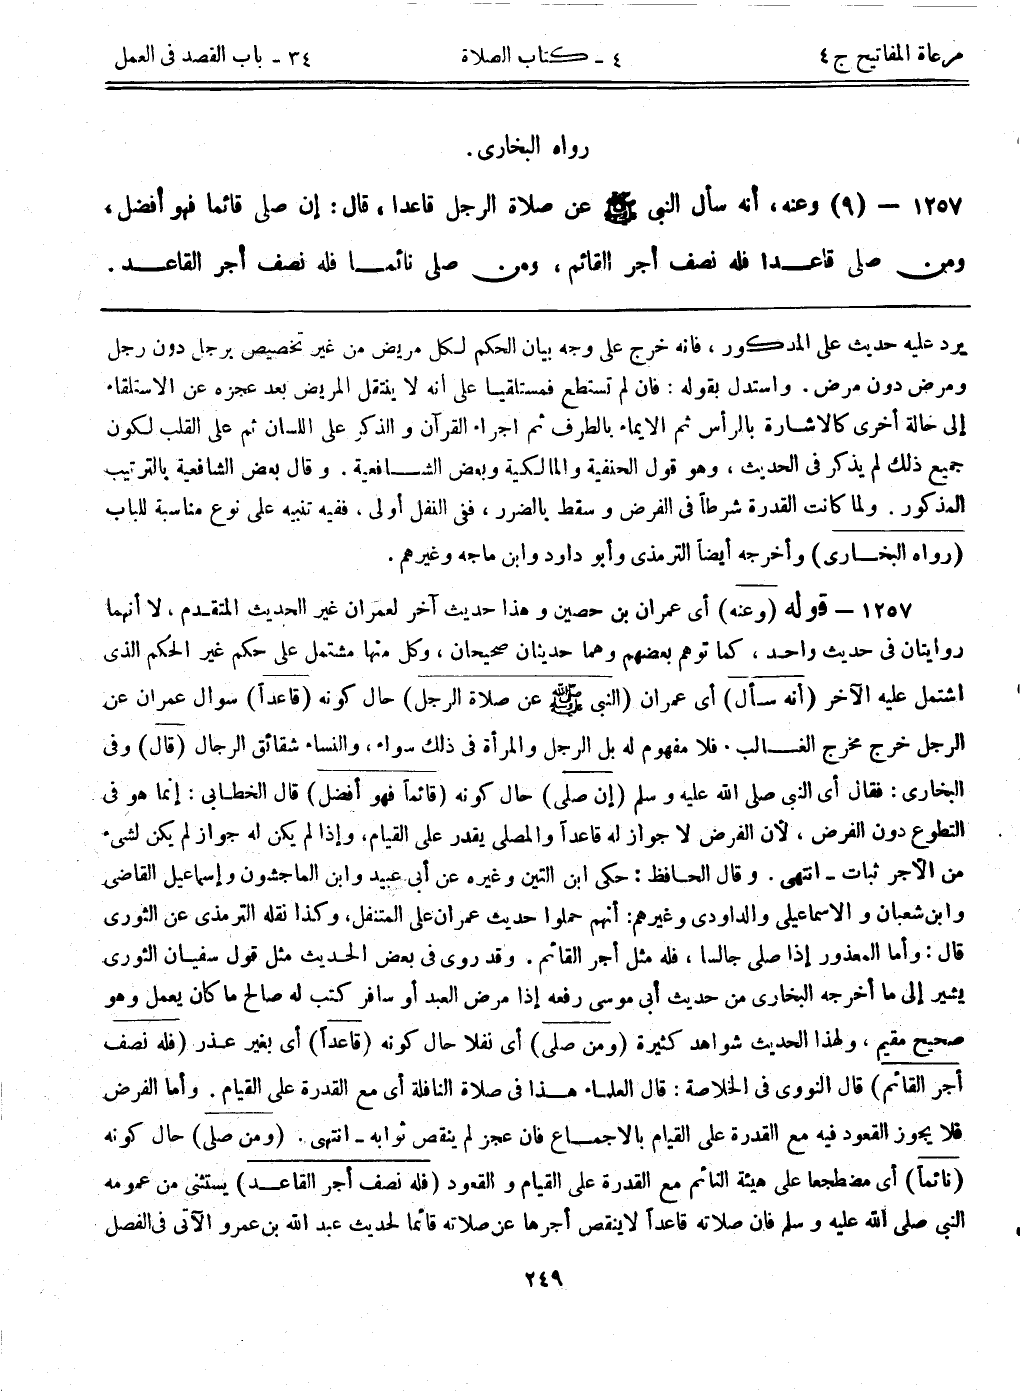 مرعاة المفاتيح ج ٤ ٤ - كتاب الصلاة ٣٤ - باب القصد فى العمل
رواه البخارى .
١٢٥٧ – (٩) وعنه، أنه سأل النبى ﷺ عن صلاة الرجل قاعدا، قال: إن صلى قائما فهو أفضل،
ومن صلى قاعدا فله نصف أجر القائم، ومن صلى نائما فله نصف أجر القاعد.
يرد عليه حديث على المذكور، فانه خرج على وجه بيان الحكم لكل مريض من غير تخصيص برجل دون رجل
ومرض دون مرض. واستدل بقوله: فان لم تستطع فمستلقيا على أنه لا ينتقل المريض بعد عجزه عن الاستلقاء
إلى حالة أخرى كالاشارة بالرأس ثم الايماء بالطرف ثم اجراء القرآن و الذكر على اللسان ثم على القلب لكون
جميع ذلك لم يذكر فى الحديث، وهو قول الحنفية والمالكية وبعض الشافعية. و قال بعض الشافعية بالترتيب
المذكور. ولما كانت القدرة شرطاً فى الفرض و سقط بالضرر، ففى النفل أولى، ففيه تنبيه على نوع مناسبة للباب
(رواه البخارى) وأخرجه أيضاً الترمذى وأبو داود وابن ماجه وغيرهم.
١٢٥٧ – قوله (وعنه) أى عمران بن حصين و هذا حديث آخر لعمران غير الحديث المتقدم، لا أنهما
روايتان فى حديث واحد، كما توهم بعضهم وهما حديثان صحيحان، وكل منها مشتمل على حكم غير الحكم الذى
اشتمل عليه الآخر (أنه سأل) أى عمران (النبى ﷺ عن صلاة الرجل) حال كونه (قاعداً) سوال عمران عن
الرجل خرج مخرج الغالب. فلا مفهوم له بل الرجل والمرأة فى ذلك سواء، والنساء شقائق الرجال (قال) وفى
البخارى: فقال أى النبى صلى الله عليه و سلم (إن صلى) حال كونه (قائماً فهو أفضل) قال الخطابى: إنما هو فى
التطوع دون الفرض، لأن الفرض لا جواز له قاعداً والمصلى يقدر على القيام، وإذا لم يكن له جواز لم يكن لشىء
من الأجر ثبات - انتهى. و قال الحافظ: حكى ابن التين وغيره عن أبى عبيد وابن الماجشون و إسماعيل القاضى
وابن شعبان و الاسماعيلى والداودى وغيرهم: أنهم حملوا حديث عمران على المتنفل، وكذا نقله الترمذى عن الثورى
قال: وأما المعذور إذا صلى جالسا، فله مثل أجر القائم. وقد روى فى بعض الحديث مثل قول سفيان الثورى
يشير إلى ما أخرجه البخارى من حديث أبى موسى رفعه إذا مرض العبد أو سافر كتب له صالح ما كان يعمل وهو
صحيح مقيم، ولهذا الحديث شواهد كثيرة (ومن صلى) أى نفلا حال كونه (قاعداً) أى بغير عذر (فله نصف
أجر القائم) قال النووى فى الخلاصة: قال العلماء هذا فى صلاة النافلة أى مع القدرة على القيام. وأما الفرض
فلا يجوز القعود فيه مع القدرة على القيام بالاجماع فان عجز لم ينقص ثوابه - انتهى. (ومن صلى) حال كونه
(نائماً) أى مضطجعا على هيئة النائم مع القدرة على القيام و القعود (فله نصف أجر القاعد) يستثنى من عمومه
النبى صلى الله عليه و سلم فان صلاته قاعداً لاينقص أجرها عن صلاته قائما لحديث عبد الله بن عمرو الآتى فى الفصل
٢٤٩